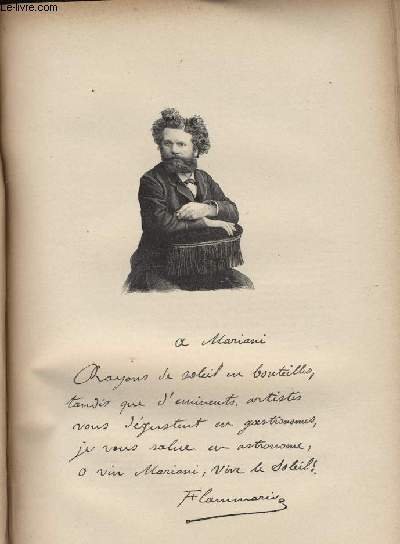 Le-livre.com
a Mariani
Rayons de soleil en bouteilles,
tandis que d'éminents artistes
vous dégustent en gastronomes,
je vous salue en astronome,
O vin Mariani; Vive le Soleil!
Flammarion